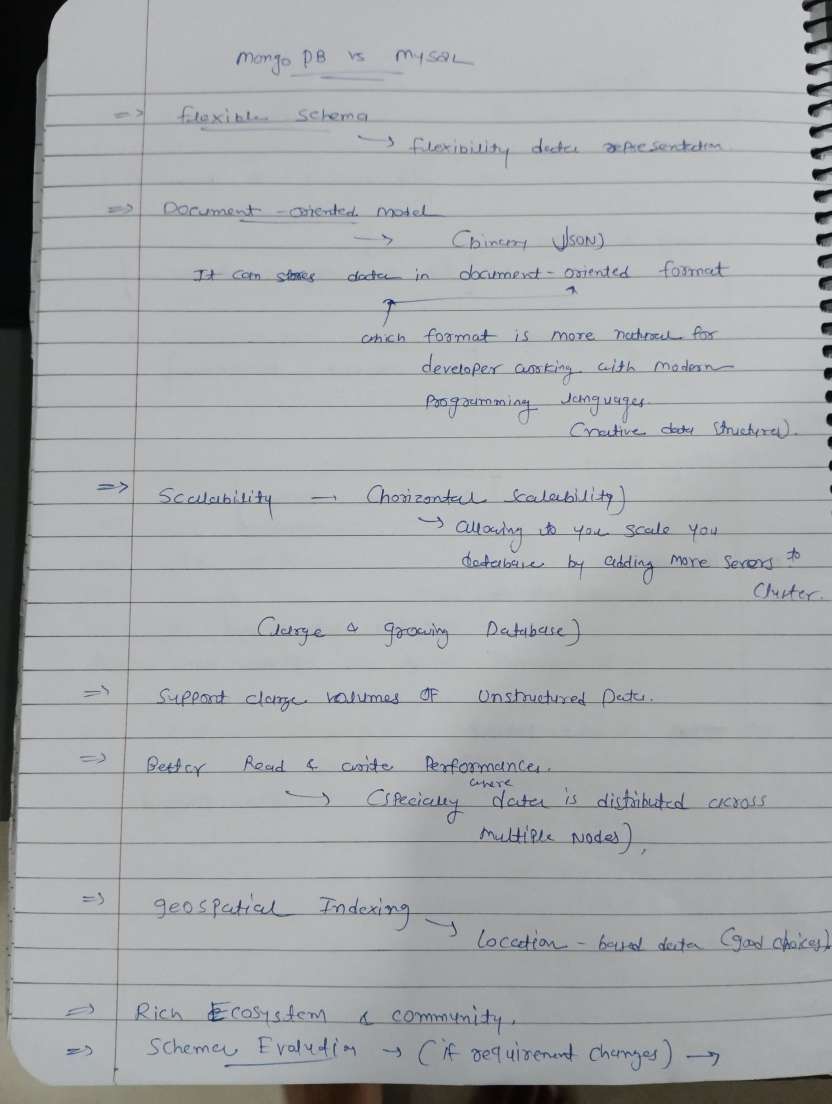 Mongo DB vs MySQL
=> flexible schema
→ flexibility data representation.
=> Document - oriented model
→ (binary JSON)
It can stores data in document - oriented format
which format is more natural for
developer working with modern
programming languages.
(native data structures).
=> Scalability → (horizontal scalability)
→ allowing to you scale you
database by adding more severs to
cluster.
(large & growing Database)
=> Support large volumes OF Unstructured Data.
=> Better Read & write Performance.
→ (specially where data is distributed across
multiple nodes),
=> geospatial Indexing
→ location - based data (good choices)
=> Rich Ecosystem & community,
=> Schema Evaludin → (if requirement changes) →